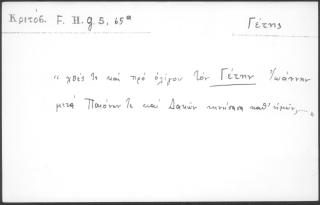 Κριτόβ. F. H. g. 5, 65ª
Γέτης
"χθὲς τε καὶ πρὸ ὀλίγου τὸν Γέτην Ἰωάννην
μετὰ Παιόνων τε καὶ Δακῶν κινήσαντα καθ' ἡμῶν,...."